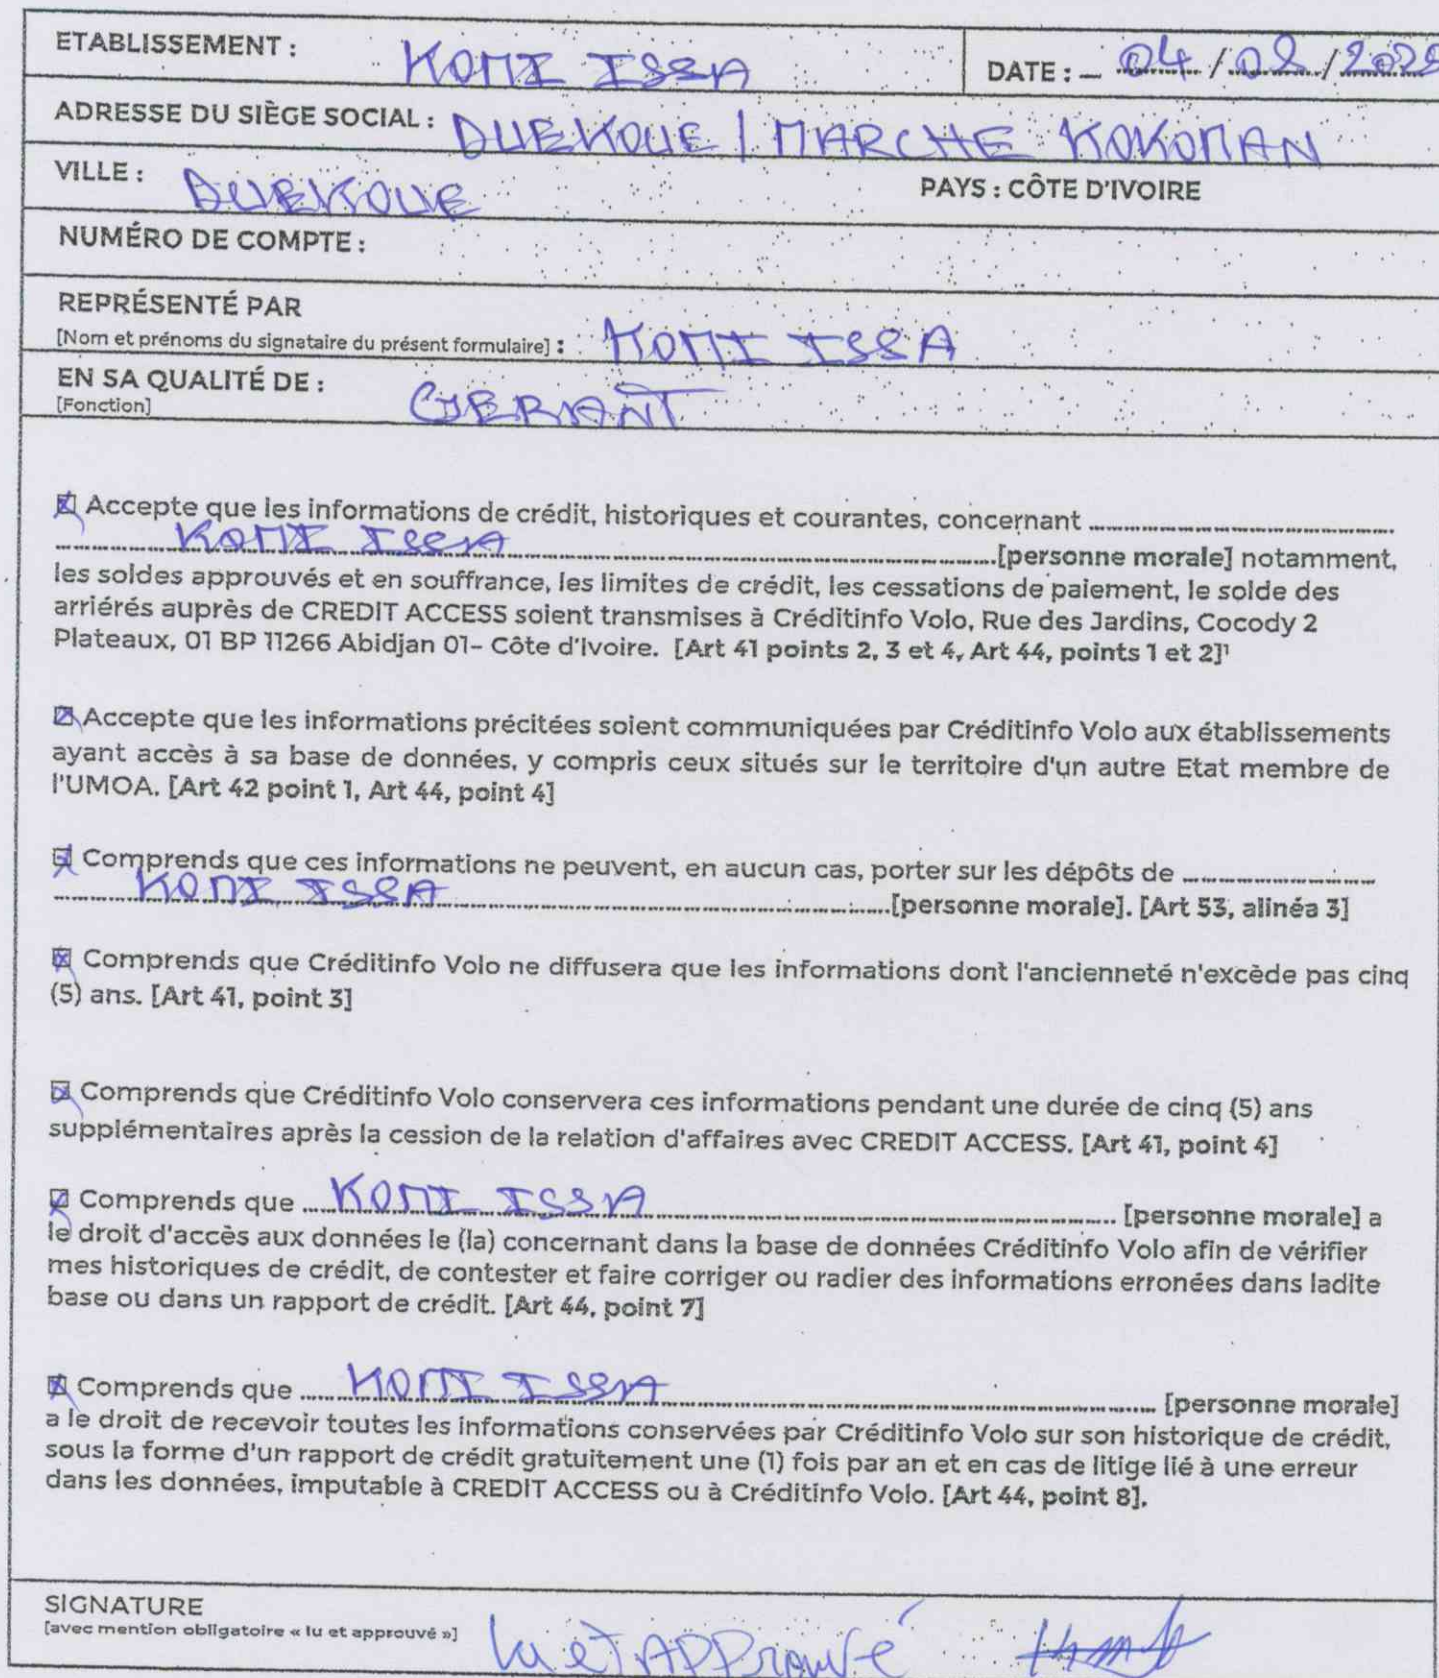 ETABLISSEMENT : KOMI ISSA
DATE : – 04 / 02 / 2025
ADRESSE DU SIÈGE SOCIAL : DUEKOUE | MARCHE KOKOMAN
VILLE : DUEKOUE PAYS : CÔTE D'IVOIRE
NUMÉRO DE COMPTE :
REPRÉSENTÉ PAR
[Nom et prénoms du signataire du présent formulaire] : KOMI ISSA
EN SA QUALITÉ DE : GERANT
[Fonction]
☒ Accepte que les informations de crédit, historiques et courantes, concernant
KOMI ISSA [personne morale] notamment,
les soldes approuvés et en souffrance, les limites de crédit, les cessations de paiement, le solde des
arriérés auprès de CREDIT ACCESS soient transmises à Créditinfo Volo, Rue des Jardins, Cocody 2
Plateaux, 01 BP 11266 Abidjan 01– Côte d'Ivoire. [Art 41 points 2, 3 et 4, Art 44, points 1 et 2]¹
☒ Accepte que les informations précitées soient communiquées par Créditinfo Volo aux établissements
ayant accès à sa base de données, y compris ceux situés sur le territoire d'un autre Etat membre de
l'UMOA. [Art 42 point 1, Art 44, point 4]
☒ Comprends que ces informations ne peuvent, en aucun cas, porter sur les dépôts de
KOMI ISSA [personne morale]. [Art 53, alinéa 3]
☒ Comprends que Créditinfo Volo ne diffusera que les informations dont l'ancienneté n'excède pas cinq
(5) ans. [Art 41, point 3]
☒ Comprends que Créditinfo Volo conservera ces informations pendant une durée de cinq (5) ans
supplémentaires après la cession de la relation d'affaires avec CREDIT ACCESS. [Art 41, point 4]
☒ Comprends que KOMI ISSA [personne morale] a
le droit d'accès aux données le (la) concernant dans la base de données Créditinfo Volo afin de vérifier
mes historiques de crédit, de contester et faire corriger ou radier des informations erronées dans ladite
base ou dans un rapport de crédit. [Art 44, point 7]
☒ Comprends que KOMI ISSA [personne morale]
a le droit de recevoir toutes les informations conservées par Créditinfo Volo sur son historique de crédit,
sous la forme d'un rapport de crédit gratuitement une (1) fois par an et en cas de litige lié à une erreur
dans les données, imputable à CREDIT ACCESS ou à Créditinfo Volo. [Art 44, point 8].
SIGNATURE
[avec mention obligatoire « lu et approuvé »] lu et APProuvé